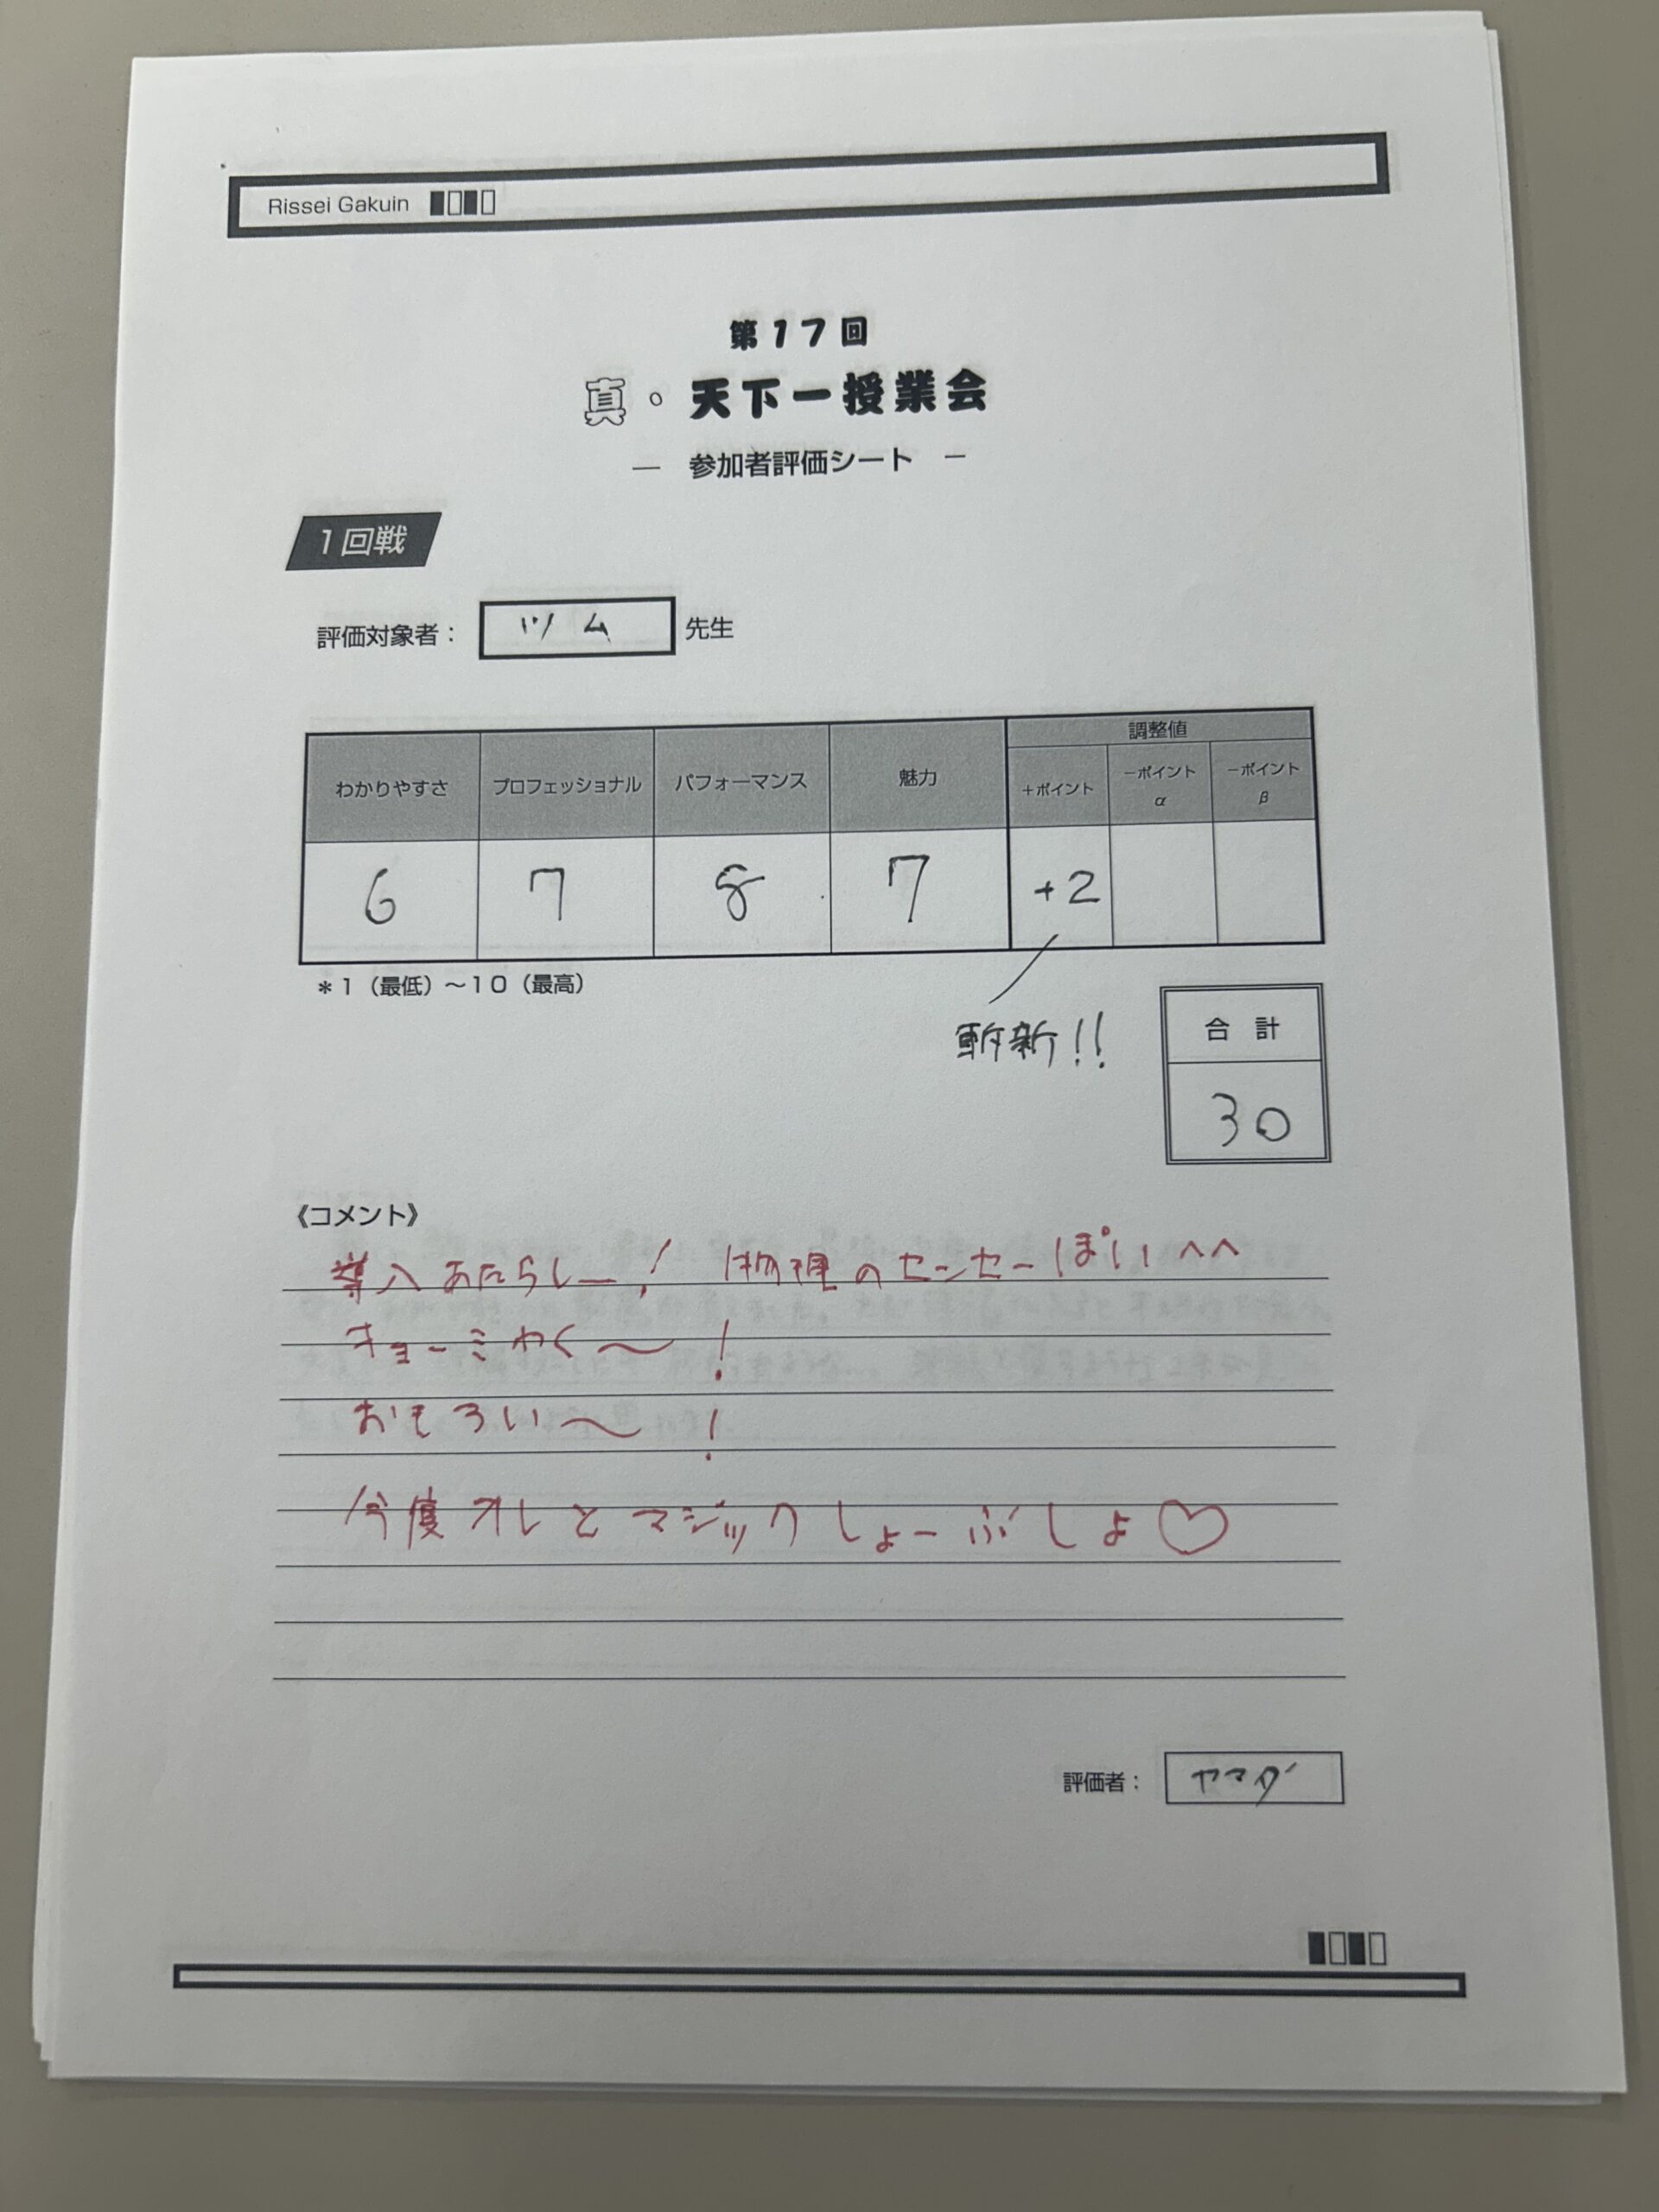 Rissei Gakuin
第17回
真。天下一授業会
— 参加者評価シート —
1回戦
評価対象者： ツム 先生
調整値
わかりやすさ プロフェッショナル パフォーマンス 魅力 +ポイント −ポイント α −ポイント β
6 7 8 7 +2
＊1（最低）〜10（最高）
斬新!!
合計
30
《コメント》
導入あたらしー! 物理のセンセーぽい^^
キョーミわく〜!
おもろい〜!
今度オレとマジックしょーぶしよ♡
評価者： ヤマダ